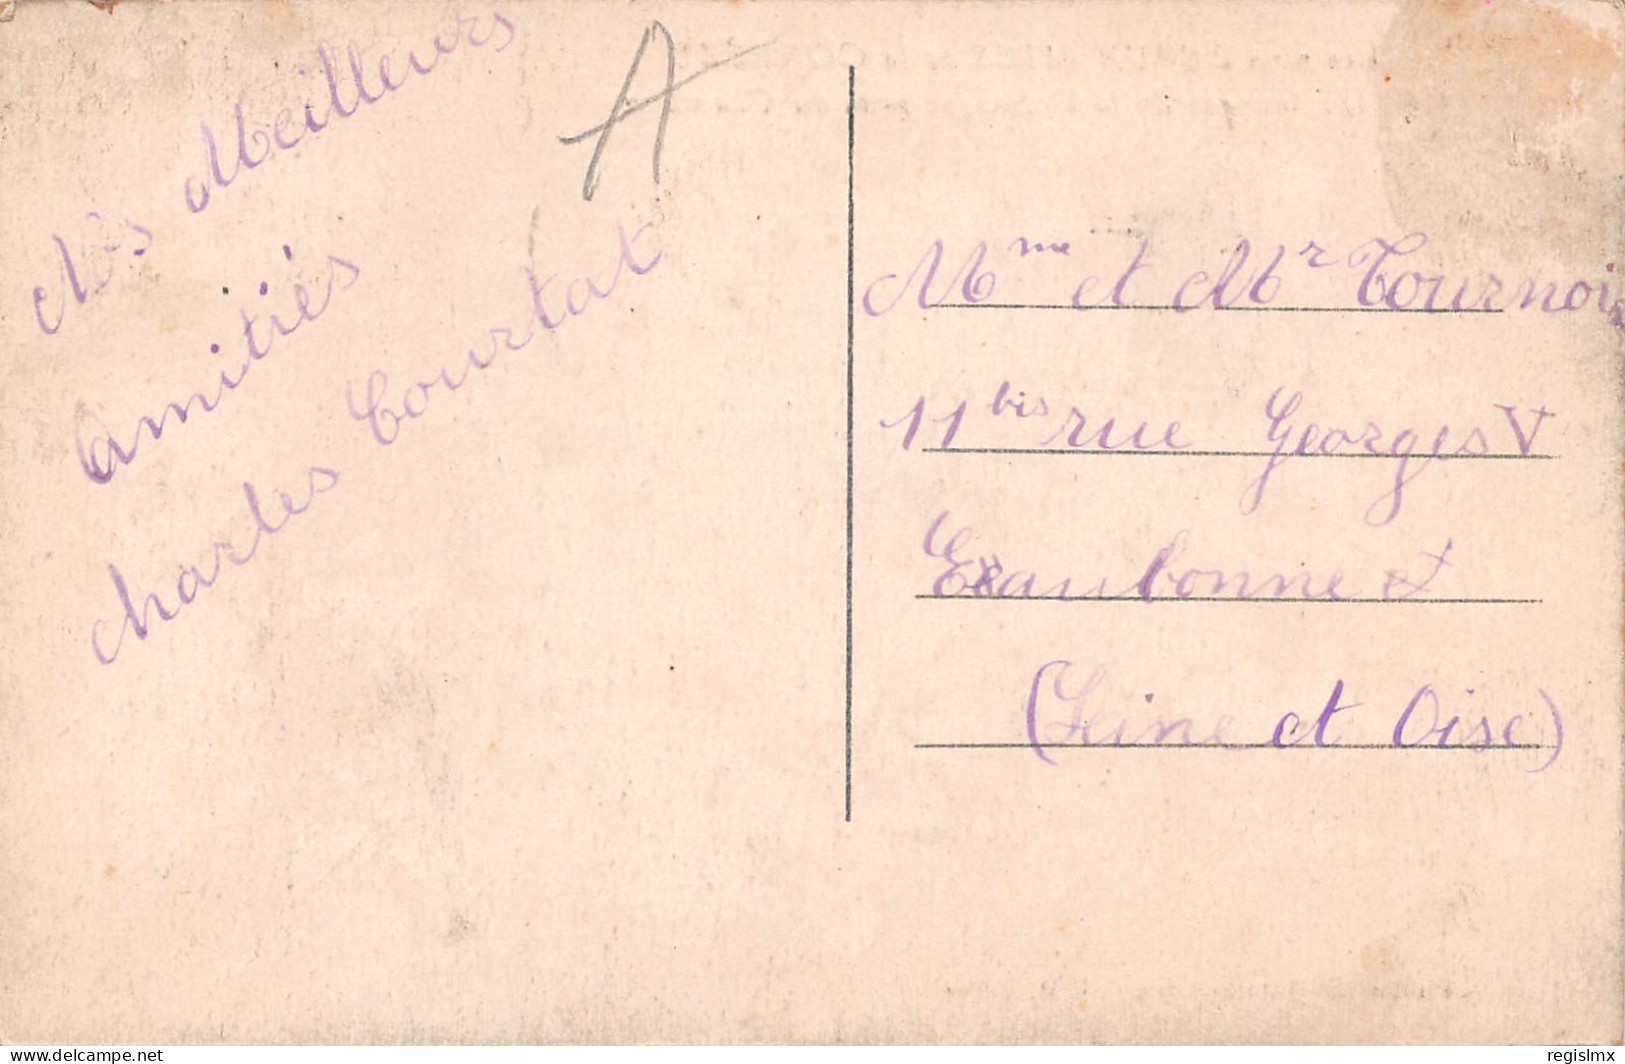 Meilleurs
Amitiés
Charles Courtat
A
Mme et Mr Tournois
11 bis rue Georges V
Eaubonne
(Seine et Oise)
www.delcampe.net
regislmx